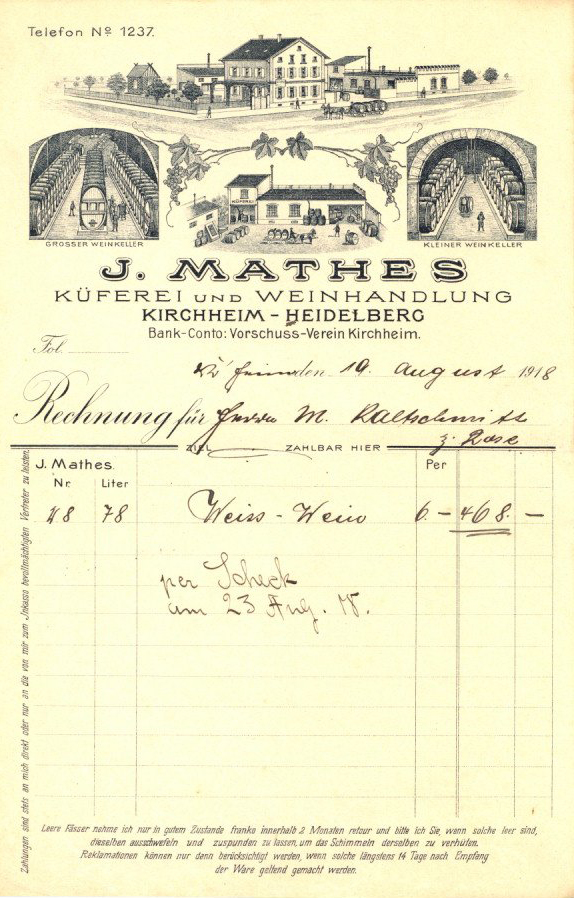 Telefon Nº 1237.
KÜFEREI
GROSSER WEINKELLER
KLEINER WEINKELLER
J. MATHES
KÜFEREI UND WEINHANDLUNG
KIRCHHEIM - HEIDELBERG
Bank-Conto: Vorschuss-Verein Kirchheim.
Fol.
den 19. August 1918
Rechnung für Herrn M. Kaltschmitt
z. Rose
ZIEL ZAHLBAR HIER
J. Mathes. Per
Nr. Liter
48 78 Weiss-Wein 6.- 468.-
per Scheck
am 23 Aug. 18.
Zahlungen sind stets an mich direkt oder nur an die von mir zum Jnkasso bevollmächtigten Vertreter zu leisten.
Leere Fässer nehme ich nur in gutem Zustande franko innerhalb 2 Monaten retour und bitte ich Sie, wenn solche leer sind,
dieselben ausschwefeln und zuspunden zu lassen, um das Schimmeln derselben zu verhüten.
Reklamationen können nur dann berücksichtigt werden, wenn solche längstens 14 Tage nach Empfang
der Ware geltend gemacht werden.